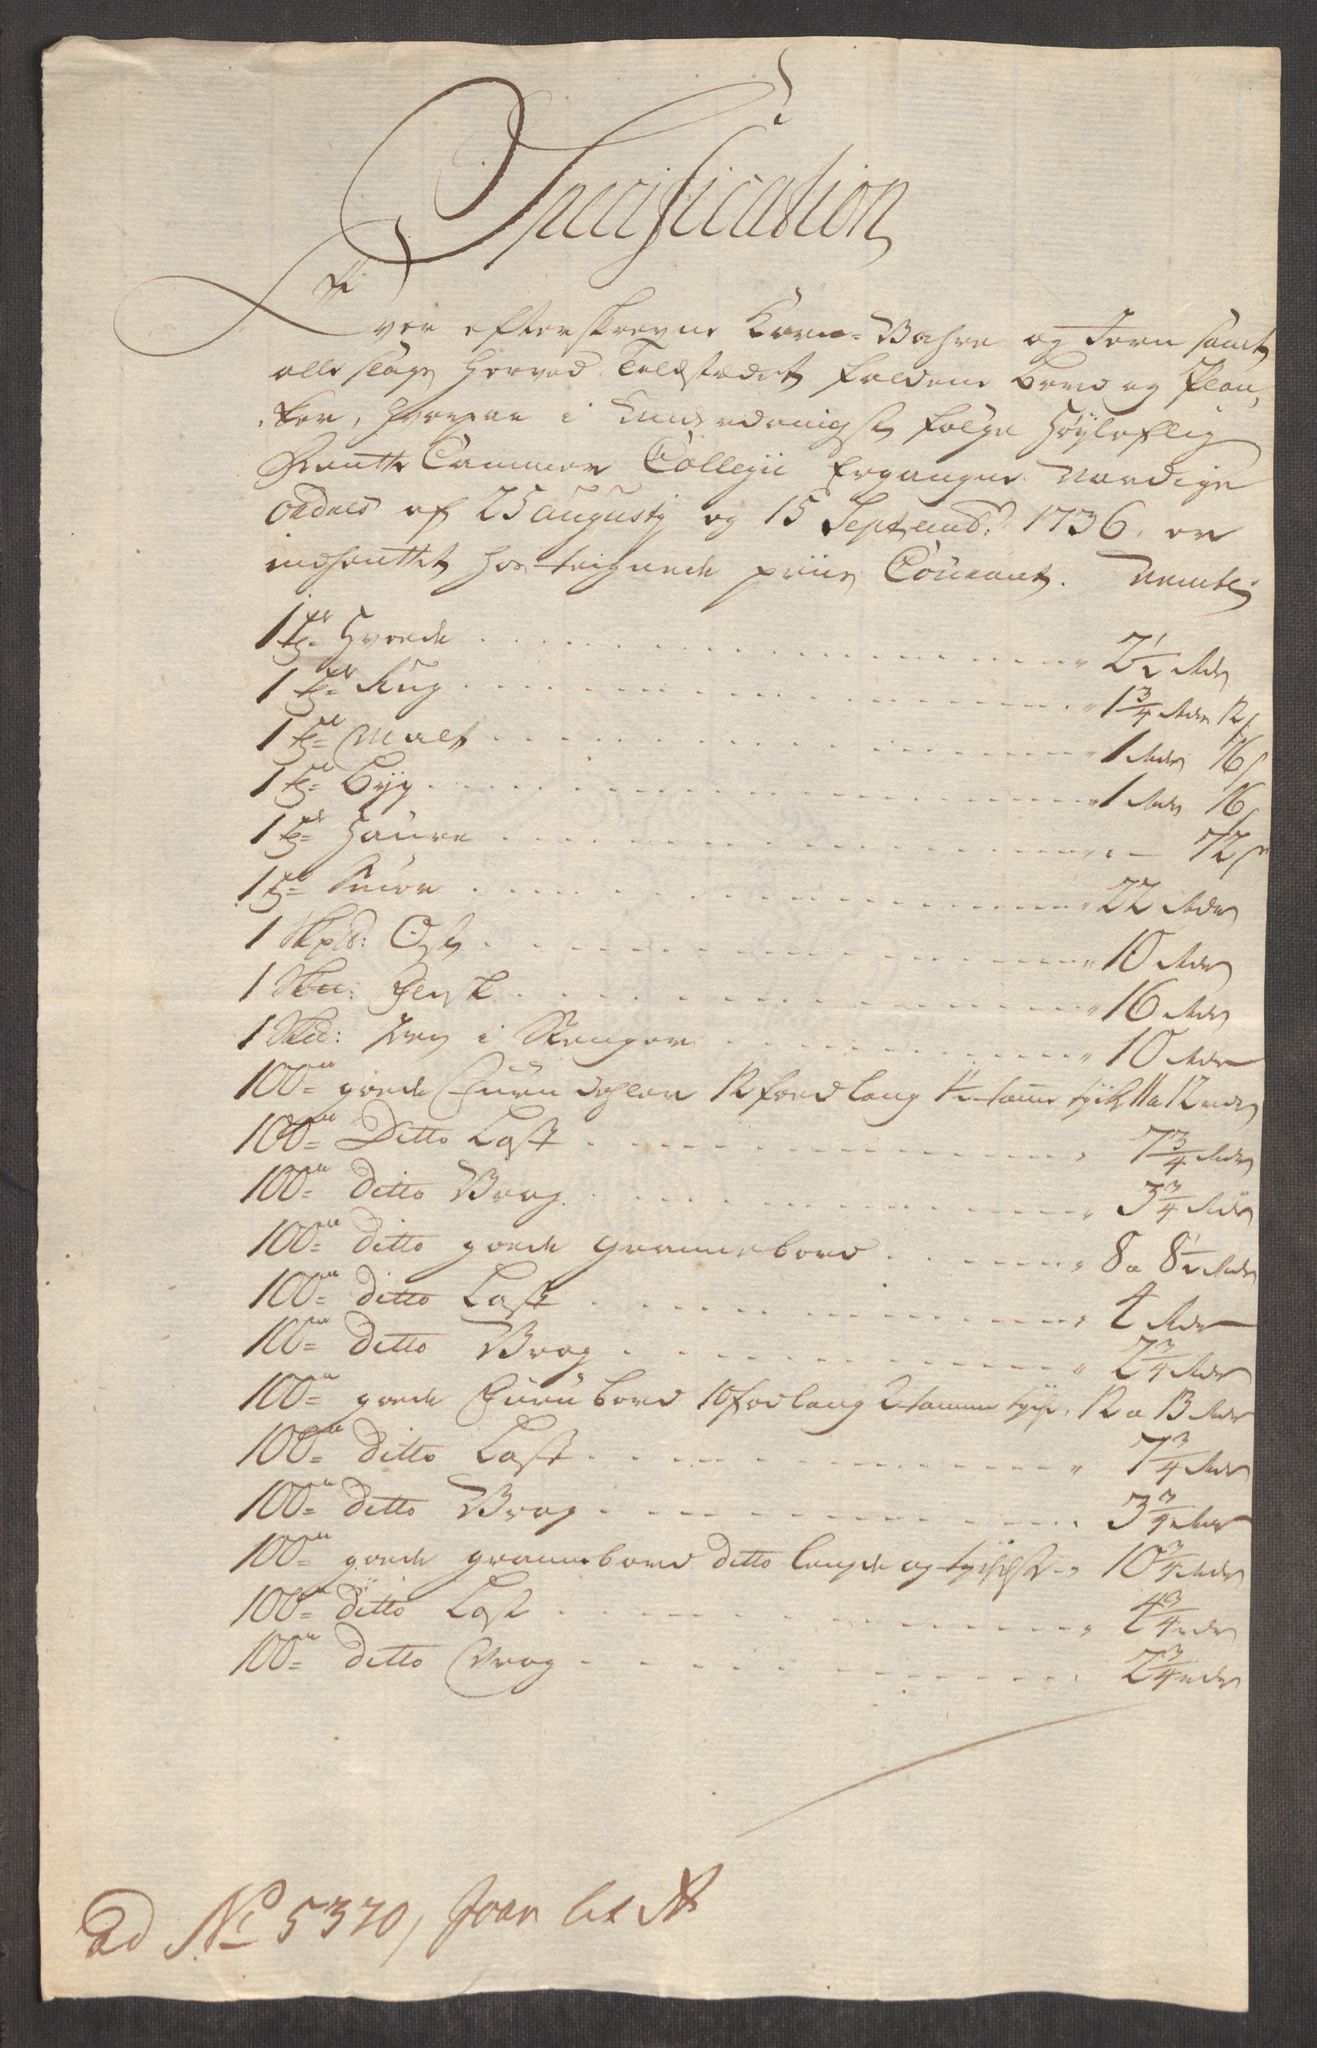 Specification
Over efterskrevne Korn-Vahre og Jern samt
alle slags herved Toldstædet faldene bord og Plan,
ker, hvorpaa i Underdanigst følge Høyloflig
Rente Cammer Collegii Ergangne Naadige
Ordres af 25 Augustj og 15 Septemb: 1736, er
indhentet hos-teignede priis Courant. Nemlig
1 tde Hvede 2½ Rdr
1 tde Rug 1¾ Rdr 12 s
1 tde Malt 1 Rdr 16 s
1 tde Byg 1 Rdr 16
1 tde Haure 72 s
1 tde Smør 22 Rdr
1 Skpd: Ost 10 Rdr
1 Skd: Flesk 16 Rdr
1 Skd: Jern i Stenger 10 Rdr
100de goede Furu dehler 12 foed lang 1½ tomme tyck 11 a 12 Rdr
100de Ditto Last 7¾ Rdr
100de ditto Vrag 3¾ Rdr
100de ditto goede Granebord 8 a 8½ Rdr
100de ditto Last 4 Rdr
100de ditto Vrag 2¾ Rdr
100de goede Furu bord 10 fod lang 2 tomme tyck 12 a 13 Rdr
100de ditto Last 7¾ Rdr
100de ditto Vrag 3¾ Rdr
100de goede granebord ditto lengde og tyckelse 10¾ Rdr
100de ditto Last 4¾ Rdr
100de ditto Vrag 2¾ Rdr
Ad No 5370,